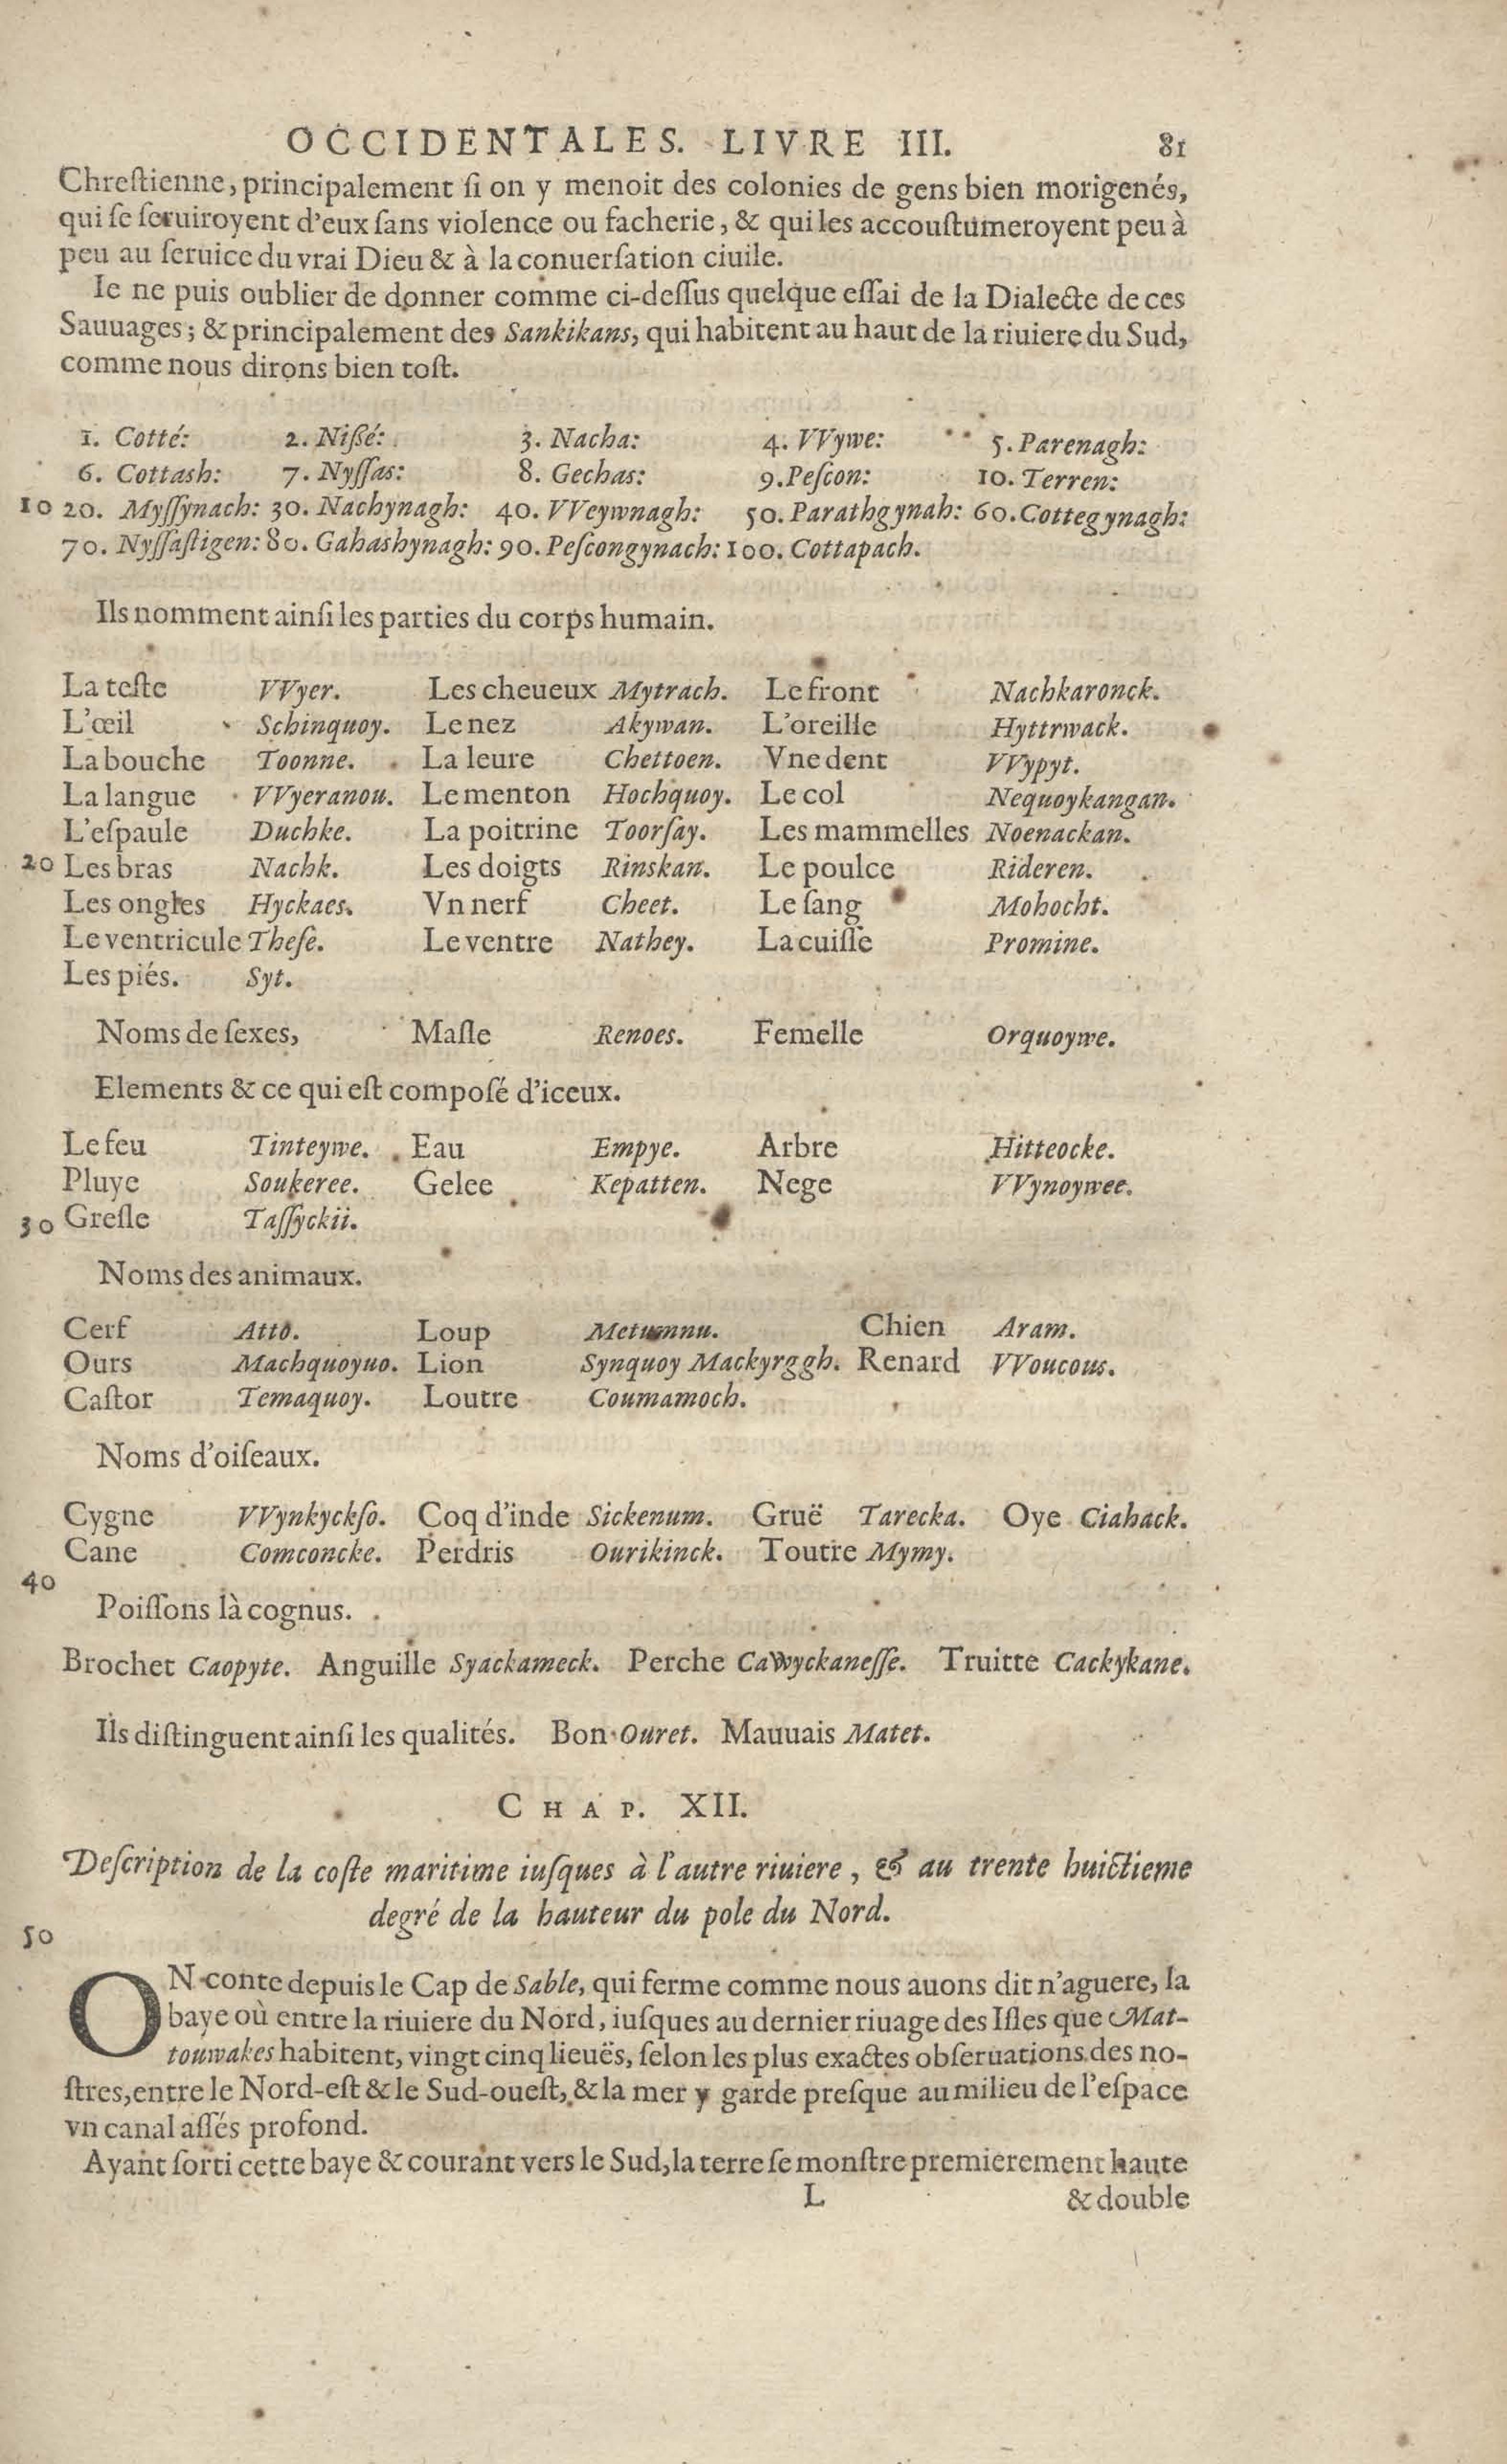 OCCIDENTALES. LIVRE III. 81
Chreſtienne, principalement ſi on y menoit des colonies de gens bien morigenés,
qui ſe ſeruiroyent d'eux ſans violence ou facherie, & qui les accouſtumeroyent peu à
peu au ſeruice du vrai Dieu & à la conuerſation ciuile.
Ie ne puis oublier de donner comme ci-deſſus quelque eſſai de la Dialecte de ces
Sauuages; & principalement des Sankikans, qui habitent au haut de la riuiere du Sud,
comme nous dirons bien toſt.
1. Cotté: 2. Nißé: 3. Nacha: 4. VVywe: 5. Parenagh:
6. Cottash: 7. Nyſſas: 8. Gechas: 9. Peſcon: 10. Terren:
10 20. Myſſynach: 30. Nachynagh: 40. VVeywnagh: 50. Parathgynah: 60. Cottegynagh:
70. Nyſſaſtigen: 80. Gahashynagh: 90. Peſcongynach: 100. Cottapach.
Ils nomment ainſi les parties du corps humain.
La teſte VVyer. Les cheueux Mytrach. Le front Nachkaronck.
L'œil Schinquoy. Le nez Akywan. L'oreille Hyttrwack.
La bouche Toonne. La leure Chettoen. Vne dent VVypyt.
La langue VVyeranou. Le menton Hochquoy. Le col Nequoykangan.
L'eſpaule Duchke. La poitrine Toorſay. Les mammelles Noenackan.
20 Les bras Nachk. Les doigts Rinskan. Le poulce Rideren.
Les ongles Hyckaes. Vn nerf Cheet. Le ſang Mohocht.
Le ventricule Theſe. Le ventre Nathey. La cuiſſe Promine.
Les piés. Syt.
Noms de ſexes, Maſle Renoes. Femelle Orquoywe.
Elements & ce qui eſt compoſé d'iceux.
Le feu Tinteywe. Eau Empye. Arbre Hitteocke.
Pluye Soukeree. Gelee Kepatten. Nege VVynoywee.
30 Greſle Taſſyckii.
Noms des animaux.
Cerf Atto. Loup Metumnu. Chien Aram.
Ours Machquoyuo. Lion Synquoy Mackyrggh. Renard VVoucous.
Caſtor Temaquoy. Loutre Coumamoch.
Noms d'oiſeaux.
Cygne VVynkyckſo. Coq d'inde Sickenum. Gruë Tarecka. Oye Ciahack.
Cane Comconcke. Perdris Ourikinck. Toutre Mymy.
40
Poiſſons là cognus.
Brochet Caopyte. Anguille Syackameck. Perche CaWyckaneſſe. Truitte Cackykane.
Ils diſtinguent ainſi les qualités. Bon Ouret. Mauuais Matet.
CHAP. XII.
Deſcription de la coſte maritime iuſques à l'autre riuiere, & au trente huictieme
degré de la hauteur du pole du Nord.
50
ON conte depuis le Cap de Sable, qui ferme comme nous auons dit n'aguere, la
baye où entre la riuiere du Nord, iuſques au dernier riuage des Iſles que Mat-
touwakes habitent, vingt cinq lieuës, ſelon les plus exactes obſeruations des no-
ſtres, entre le Nord-eſt & le Sud-oueſt, & la mer y garde preſque au milieu de l'eſpace
vn canal aſſés profond.
Ayant ſorti cette baye & courant vers le Sud, la terre ſe monſtre premierement haute
L & double